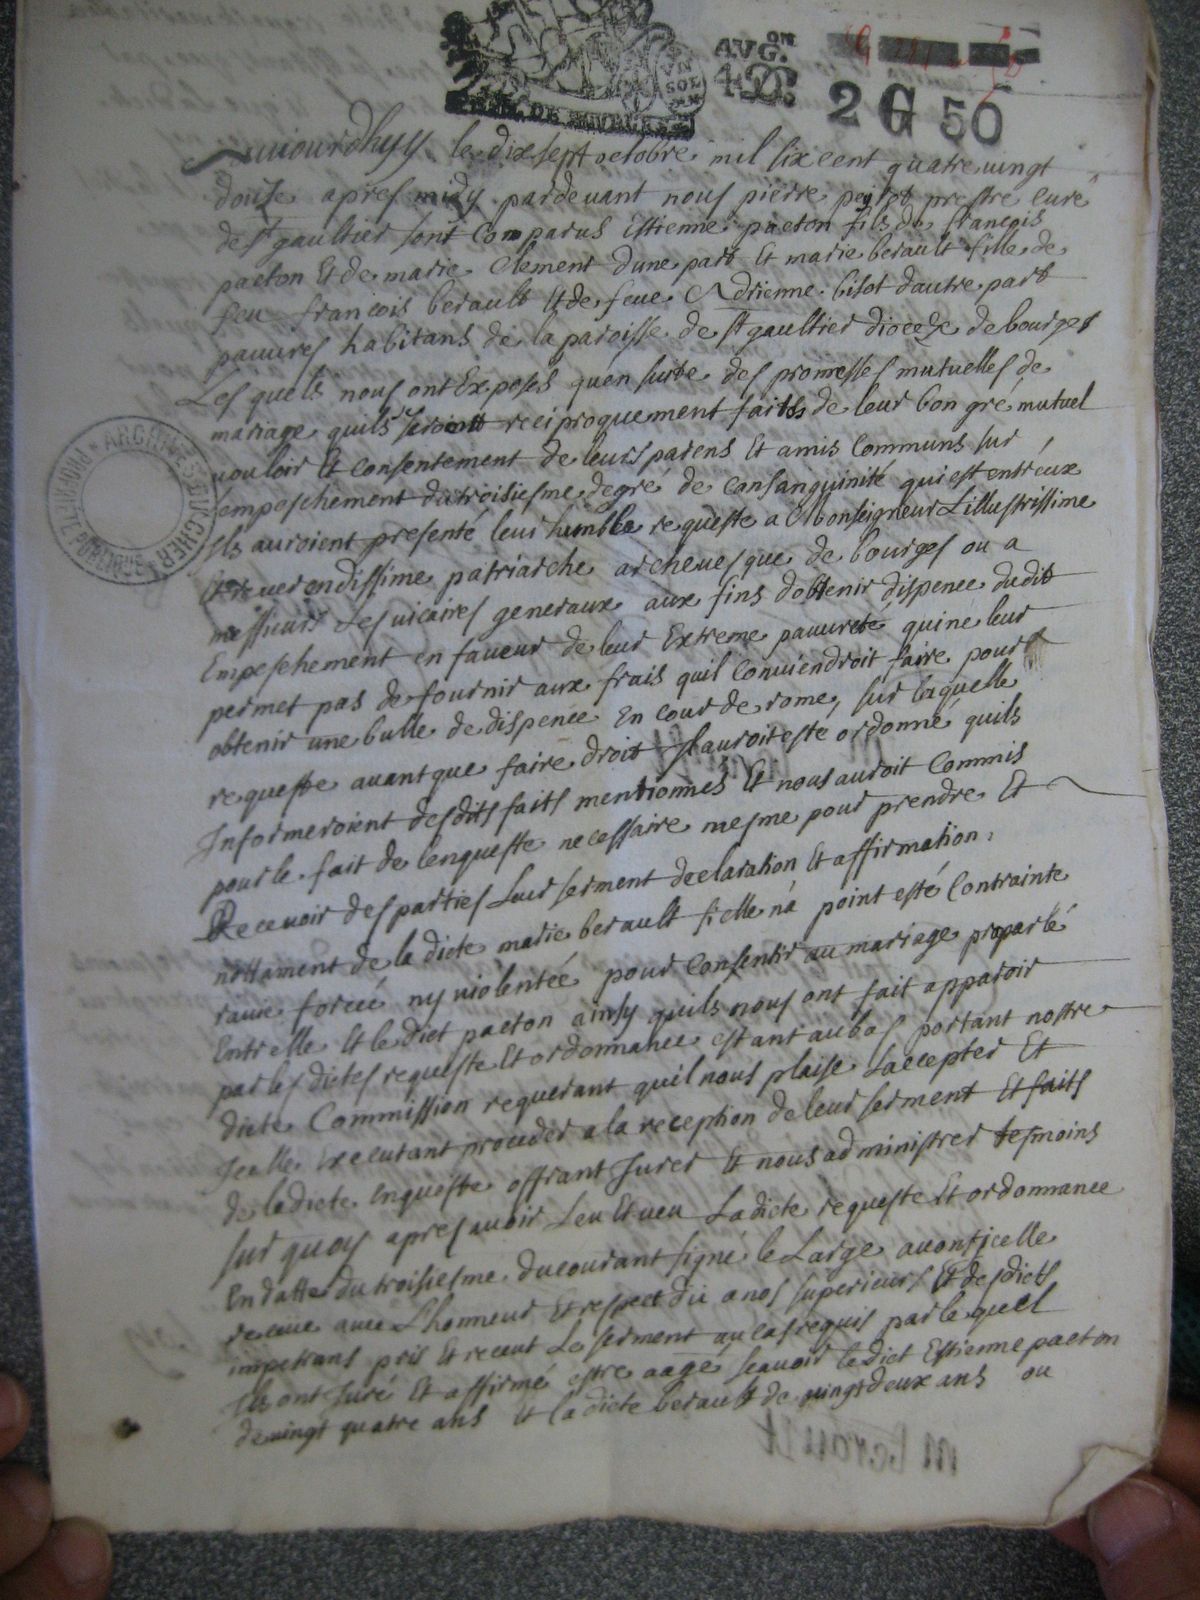 AVG.ON
4 D.
VN SOL
GEN. DE
2 G 50
ARCHIVES DU CHER
PROPRIÉTÉ PUBLIQUE
Aujourdhuy le dix sept octobre mil six cent quatre vingt
douse apres midy pardevant nous pierre prestre curé
de st gaultier sont Comparus Estienne pacton fils de francois
pacton Et de marie Clement dune part Et marie berault fille de
feu francois berault Et de feue Adrienne bisot dautre part
pauures habitans de la paroisse de st gaultier dioceze de bourges
Les quels nous ont Exposés quen suitte des promesses mutuelles de
mariage quils se reciproquement faittes de leur bon gré mutuel
vouloir Et Consentement de leurs parens Et amis Communs sur
lempeschement du troisiesme degré de Consanguinité qui est entreux
Ils auroient presenté leur humble requeste a Monseigneur Lillustrissime
Et reuerendissime patriarche archeuesque de bourges ou a
messieurs Les vicaires generaux aux fins dobtenir dispence dudit
Empeschement en faueur de leur Extreme pauureté qui ne leur
permet pas de fournir aux frais quil Conuiendroit faire pour
obtenir une bulle de dispence En cour de rome, sur laquelle
requeste auant que faire droit Il auroit esté ordonné quils
Informeroient desdits faits mentionnés Et nous auroit Commis
pour le fait de lenqueste necessaire mesme pour prendre Et
Receuoir des parties Leur serment declaration Et affirmation
nottament de la dicte marie berault si elle na point esté Contrainte
rauie forcée ny violentée pour Consentir au mariage proparlé
Entr elle Et le dict pacton ainsy quils nous ont fait apparoir
par les dictes requeste Et ordonnance estant au bas portant nostre
dicte Commission requerant quil nous plaise Laccepter Et
Icelle Executant proceder a la reception de leur serment Et faits
de la dicte Enqueste offrant Jurer Et nous administrer tesmoins
sur quoy apres auoir Leu Et veu La dicte requeste Et ordonnance
En datte du troisiesme du courant signé le Large auons icelle
receüe auec Lhonneur Et respect dü a nos superieurs Et desdicts
impetrans pris Et receut Le serment au cas requis par le quel
Ils ont Juré Et affirmé estre aagé scauoir le dict Estienne pacton
de vingt quatre ans Et la dicte berault de vingt deux ans ou